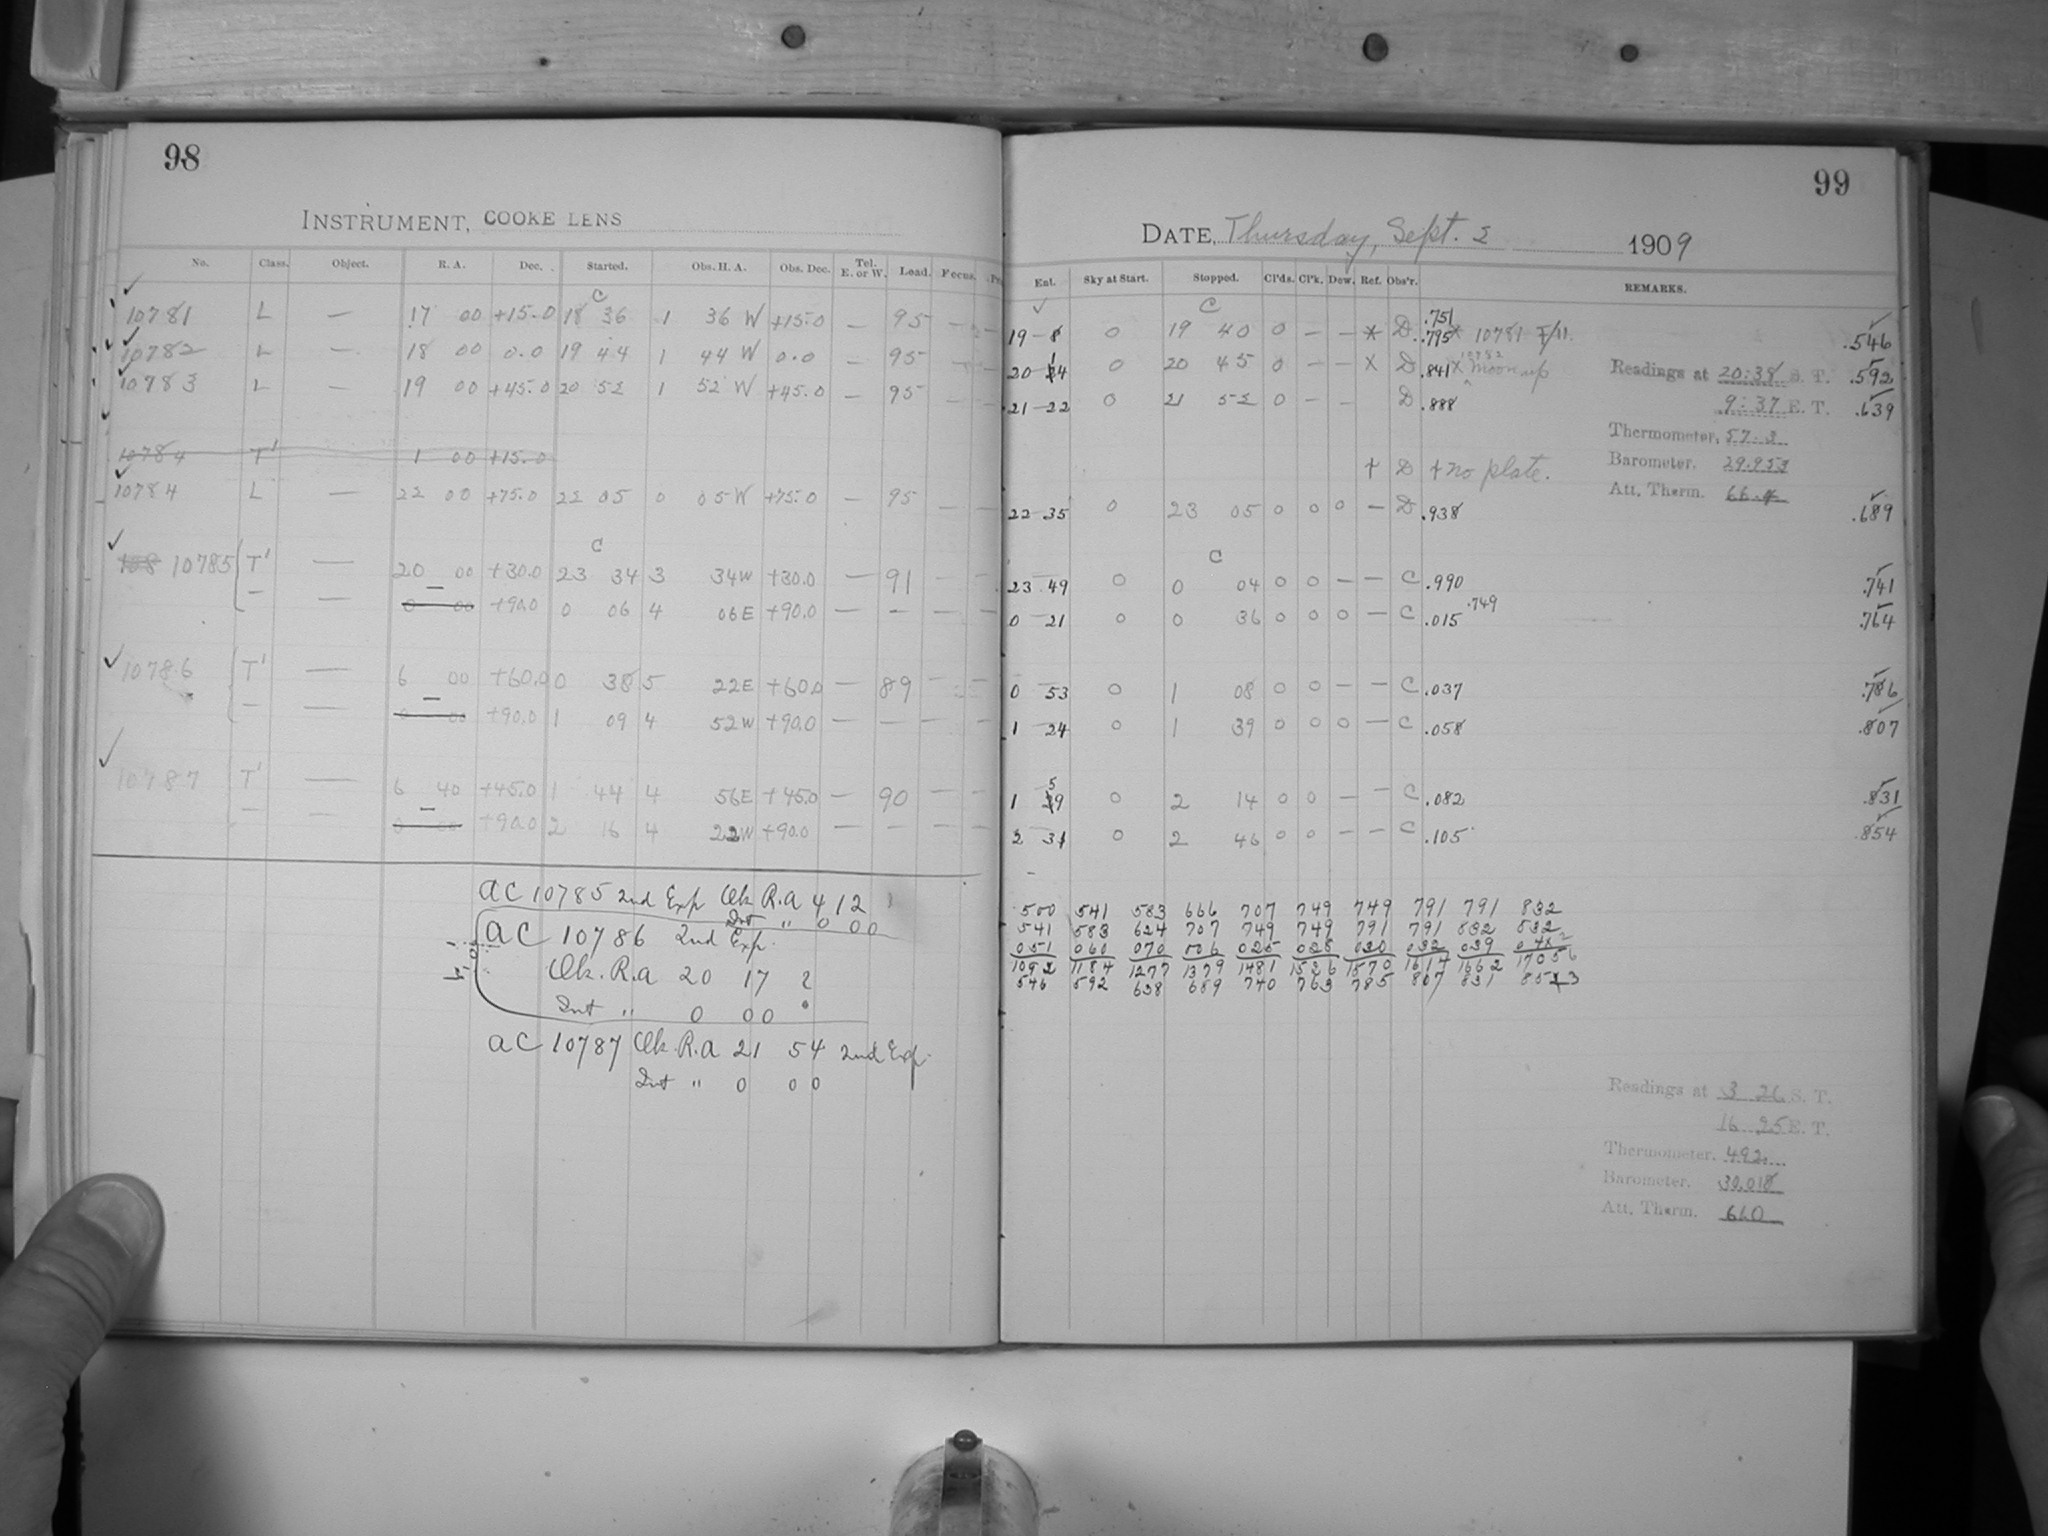 98
INSTRUMENT, COOKE LENS
No. Class. Object. R. A. Dec. Started. Obs. H. A. Obs. Dec. Tel. E. or W. Load. Focus.
C
10781 L — 17 00 +15.0 18 36 1 36 W +15.0 — 95 — —
10782 L — 18 00 0.0 19 44 1 44 W 0.0 — 95 — —
10783 L — 19 00 +45.0 20 52 1 52 W +45.0 — 95 — —
10784 T' 1 00 +15.0
10784 L — 22 00 +75.0 22 05 0 05 W +75.0 — 95 — —
C
108 10785 T' — 20 00 +30.0 23 34 3 34 W +30.0 — 91 — —
— — 0 00 +90.0 0 06 4 06 E +90.0 — — — —
10786 T' — 6 00 +60.0 0 38 5 22 E +60.0 — 89 — —
— — 0 00 +90.0 1 09 4 52 W +90.0 — — — —
10787 T' — 6 40 +45.0 1 44 4 56 E +45.0 — 90 — —
— — 0 00 +90.0 2 16 4 22 W +90.0 — — — —
AC 10785 2nd Exp Obs R.A 4 12
Int " 0 00
AC 10786 2nd Exp.
Obs. R.A 20 17 ?
Int " 0 00
AC 10787 Obs. R.A 21 54 2nd Exp.
Int " 0 00
99
DATE, Thursday, Sept. 2 1909
Ent. Sky at Start. Stopped. Cl'ds. Cl'k. Dew. Ref. Obs'r. REMARKS.
C
.751
19 8 0 19 40 0 — — * D .795 * 10781 F/11. .546
20 14 0 20 45 0 — — X D .841 X 10782 moon up Readings at 20:38 S. T. .592
21 22 0 21 52 0 — — D .888 9:37 E. T. .639
Thermometer, 57.3
+ D + no plate. Barometer. 29.953
Att. Therm. 66.4
22 35 0 23 05 0 0 0 — D .938 .689
C
23 49 0 0 04 0 0 — — C .990 .741
0 21 0 0 36 0 0 0 — C .015 .749 .764
0 53 0 1 08 0 0 — — C .037 .786
1 24 0 1 39 0 0 0 — C .058 .807
1 59 0 2 14 0 0 — — C .082 .831
2 31 0 2 46 0 0 — — C .105 .854
500 541 583 666 707 749 749 791 791 832
541 583 624 707 749 749 791 791 832 832
051 060 070 006 025 028 030 032 039
1092 1184 1277 1379 1481 1526 1570 1614 1662
546 592 638 689 740 763 785 807 831
Readings at 3 26 S. T.
16 25 E. T.
Thermometer. 492
Barometer. 30.018
Att. Therm. 660